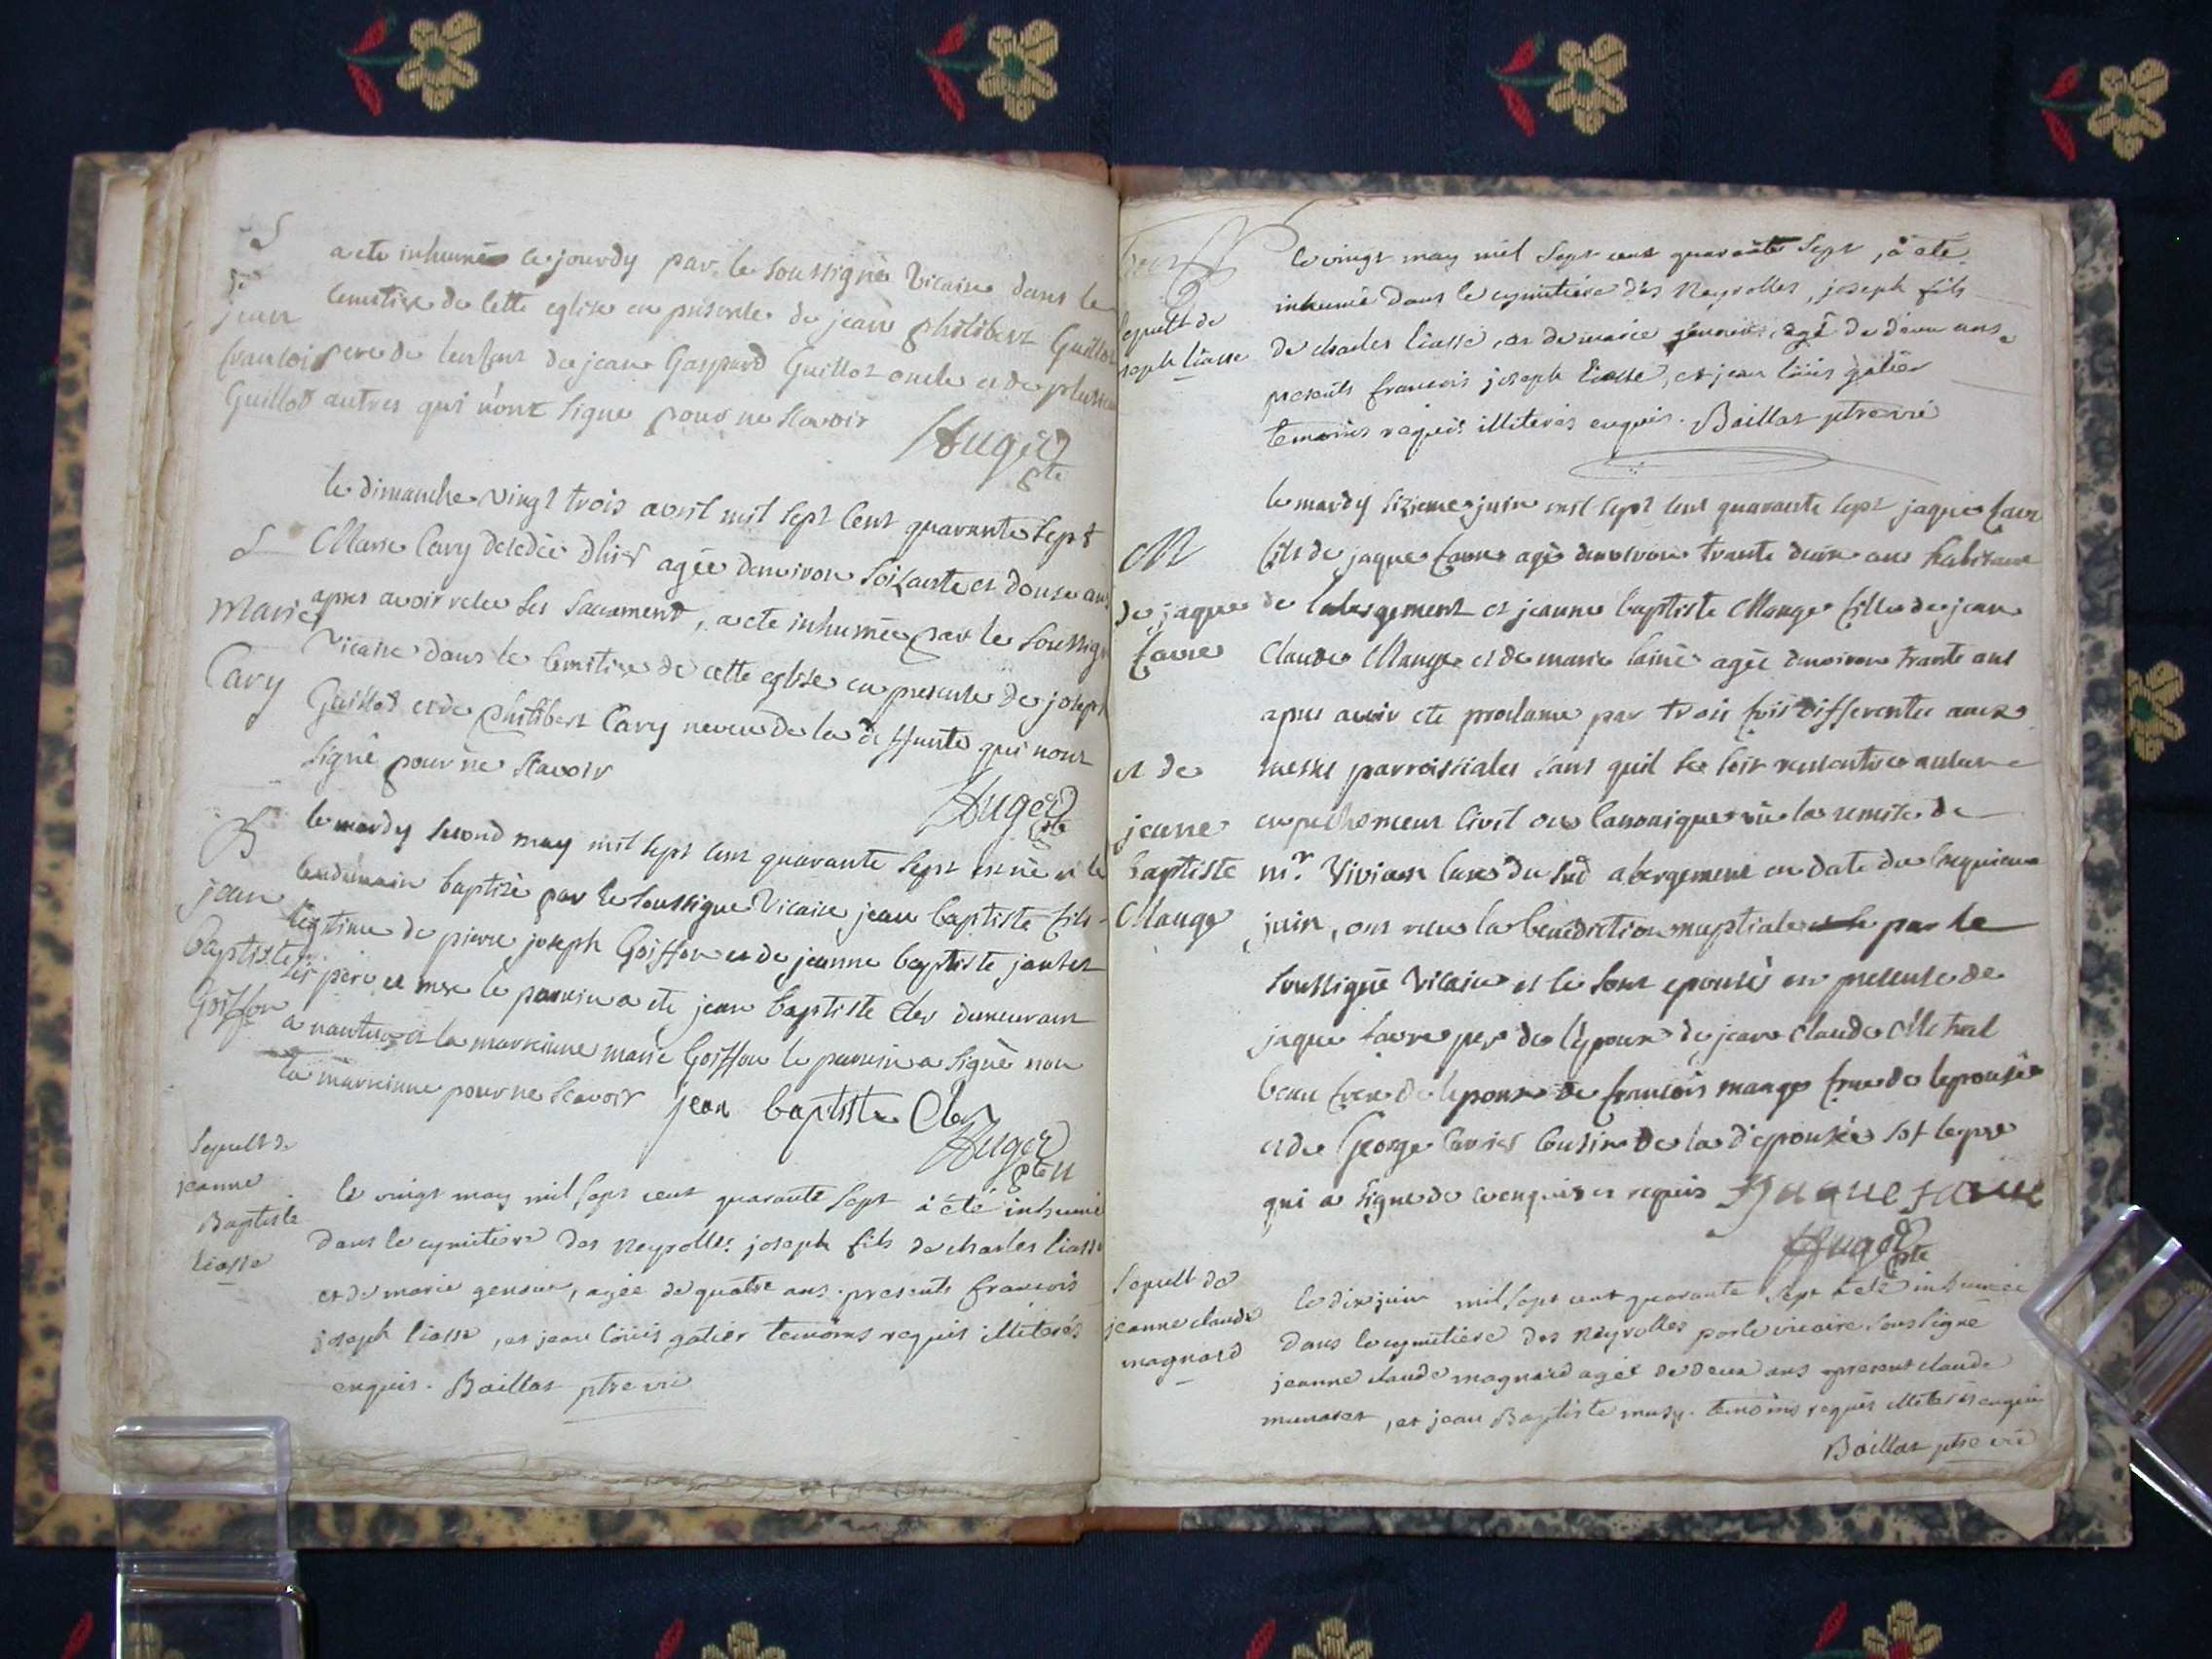 S
de
jean
francois
Guillot
a ete inhumé ce jourdy par le soussigné vicaire dans le
cemetire de cette eglise en presence de jean philibert Guillot
pere de lenfant de jean Gaspard Guillot oncle et de plusieu
autres qui n'ont signe pour ne scavoir
Auger
ptre
S
Marie
Cary
le dimanche vingt trois avril mil sept cent quarante sept
Marie Cary decedée dhier agée denviron soixante et douse ans
apres avoir receu les sacaments, a ete inhumée par le soussigné
vicaire dans le cemitire de cette eglise en presence de joseph
Guillot et de philibert Cary neveu de la deffunte qui nont
signé pour ne scavoir
Auger
ptre
B
jean
Baptiste
Goiffon
le mardy second may mil sept cent quarante sept est né et le
lendemain baptisé par le soussigne vicaire jean baptiste fils
legitime de pierre joseph Goiffon et de jeanne baptiste
ses pere et mere le parrein a ete jean baptiste Cler demeurant
a nantua et la marreinne marie Goiffon le parrein a signé non
la marreinne pour ne scavoir jean baptiste Cler
Auger
ptre
Sepult de
jeanne
Baptiste
liasse
le vingt may mil sept cent quarante sept à été inhumé
dans le cymitiere des Neyrolles joseph fils de charles liasse
et de marie , agée de quatre ans. presents francois
joseph liasse, et jean loüis galier temoins requis illiterés
enquis. Baillat ptre vic
Sepult de
joseph liasse
le vingt may mil sept cent quarante sept, à été
inhumé dans le cymitiere des Neyrolles, joseph fils
de charles liasse, et de marie , agé de deux ans.
presents francois joseph liasse, et jean loüis galier
temoins requis illiterés enquis. Baillat ptre vic
M
de jaque
favre
et de
jeanne
baptiste
Mange
le mardy sixieme juin mil sept cent quarante sept jaque favre
fils de jaque favre agé denviron trante deux ans habitant
de labergement et jeanne baptiste Mange fille de jean
Claude Mange et de marie lainé agée denviron trante ans
apres avoir ete proclame par trois fois differentes aux
messes parroissiales sans quil se soit rencontré aucun
empechement civil ou canonique vû la remise de
mr. Vivian curé du sud abergement en date du cinquieme
juin, ont receu la benediction nuptiale par le
soussigné vicaire et se sont epousés en presence de
jaque favre pere de lépoux de jean claude Metral
beau frere de lepoux de francois mange frere de lepousée
et de George cousin de la d'epousée sof lepere
qui a signe de ce enquis et requis Jaque favre
Auger
ptre
Sepult de
jeanne claude
magnard
le dix juin mil sept cent quarante sept à eté inhumée
dans le cymitiere des Neyrolles par le vicaire soussigné
jeanne claude magnard agée de deux ans present claude
, et jean Baptiste musy. temoins requis illiterés enquis
Baillat ptre vic